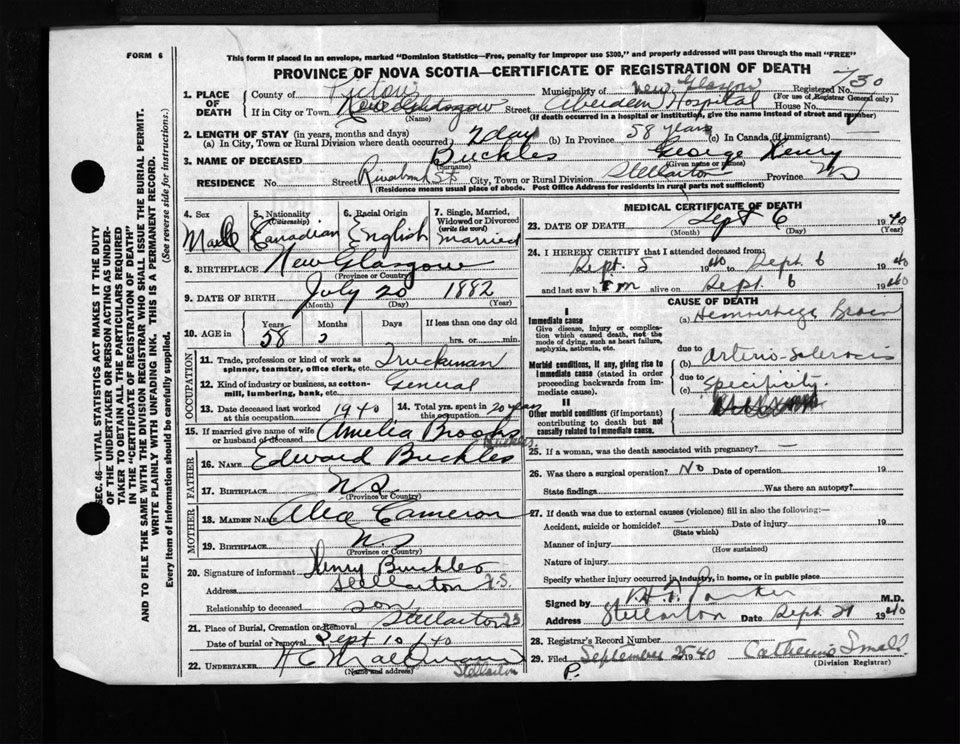 FORM 6
This form if placed in an envelope, marked "Dominion Statistics—Free, penalty for improper use $300," and properly addressed will pass through the mail "FREE"
PROVINCE OF NOVA SCOTIA—CERTIFICATE OF REGISTRATION OF DEATH
SEC. 46—VITAL STATISTICS ACT MAKES IT THE DUTY
OF THE UNDERTAKER OR PERSON ACTING AS UNDER-
TAKER TO OBTAIN ALL THE PARTICULARS REQUIRED
IN THE "CERTIFICATE OF REGISTRATION OF DEATH"
AND TO FILE THE SAME WITH THE DIVISION REGISTRAR WHO SHALL ISSUE THE BURIAL PERMIT.
WRITE PLAINLY WITH UNFADING INK. THIS IS A PERMANENT RECORD.
Every item of information should be carefully supplied. (See reverse side for instructions.)
1. PLACE OF DEATH County of Pictou Municipality of New Glasgow Registered No. 730
(For use of Registrar General only)
If in City or Town New Glasgow (Name) Street Aberdeen Hospital House No.
(If death occurred in a hospital or institution, give the name instead of street and number)
2. LENGTH OF STAY (in years, months and days)
(a) In City, Town or Rural Division where death occurred 2 day (b) In Province 58 years (c) In Canada (if immigrant)
3. NAME OF DECEASED Buckles (Surname) George Henry (Given name or names)
RESIDENCE No. Street City, Town or Rural Division Stellarton Province
(Residence means usual place of abode. Post Office Address for residents in rural parts not sufficient)
4. Sex Male
5. Nationality (Citizenship) Canadian
6. Racial Origin English
7. Single, Married, Widowed or Divorced (write the word) Married
8. BIRTHPLACE New Glasgow
(Province or Country)
9. DATE OF BIRTH July 20 1882
(Month) (Day) (Year)
10. AGE in Years 58 Months Days If less than one day old
hrs. or min.
OCCUPATION
11. Trade, profession or kind of work as spinner, teamster, office clerk, etc. Truckman
12. Kind of industry or business, as cotton-mill, lumbering, bank, etc. General
13. Date deceased last worked at this occupation 1940 14. Total yrs. spent in this occupation 20 years
15. If married give name of wife or husband of deceased Amelia Brooks
Buckles
FATHER
16. NAME Edward Buckles
17. BIRTHPLACE N S
(Province or Country)
MOTHER
18. MAIDEN NAME Cameron
19. BIRTHPLACE N. S
(Province or Country)
20. Signature of informant Henry Buckles
Address Stellarton N.S.
Relationship to deceased son
21. Place of Burial, Cremation or Removal Stellarton
Date of burial or removal Sept 10 1940
22. UNDERTAKER
(Name and address) Stellarton
MEDICAL CERTIFICATE OF DEATH
23. DATE OF DEATH Sept 6 1940
(Month) (Day) (Year)
24. I HEREBY CERTIFY that I attended deceased from:
Sept. 5 1940 to Sept 6 1940
and last saw h im alive on Sept 6 1940
CAUSE OF DEATH
I
Immediate cause
Give disease, injury or complication which caused death, not the mode of dying, such as heart failure, asphyxia, asthenia, etc.
(a) Hemorrhage Brain
due to
Morbid conditions, if any, giving rise to immediate cause (stated in order proceeding backwards from immediate cause).
(b) Arterio-sclerosis
due to
(c)
II
Other morbid conditions (if important) contributing to death but not causally related to immediate cause.
25. If a woman, was the death associated with pregnancy? —
26. Was there a surgical operation? No Date of operation 19
State findings Was there an autopsy?
27. If death was due to external causes (violence) fill in also the following:—
Accident, suicide or homicide? Date of injury 19
(State which)
Manner of injury
(How sustained)
Nature of injury
Specify whether injury occurred in industry, in home, or in public place
Signed by Parker M.D.
Address Stellarton Date Sept 21 1940
28. Registrar's Record Number
29. Filed September 25 1940 Catherine Small
(Division Registrar)
P.